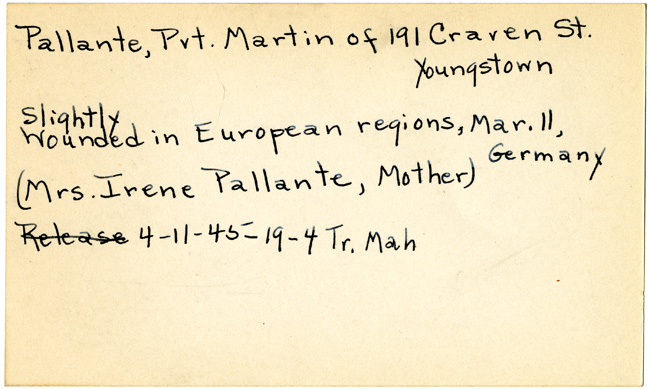 Pallante, Pvt. Martin of 191 Craven St.
Youngstown
Slightly
Wounded in European regions, Mar. 11,
Germany
(Mrs. Irene Pallante, Mother)
Release 4-11-45-19-4 Tr. Mah